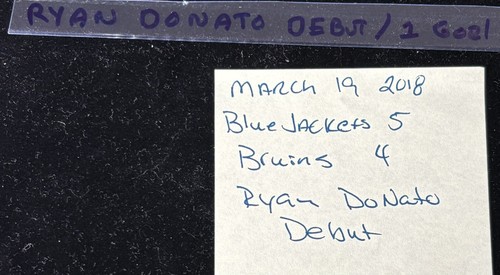 RYAN DONATO DEBUT / 1 GOal
MARCH 19 2018
Blue JACKETS 5
Bruins 4
Ryan DoNato
Debut